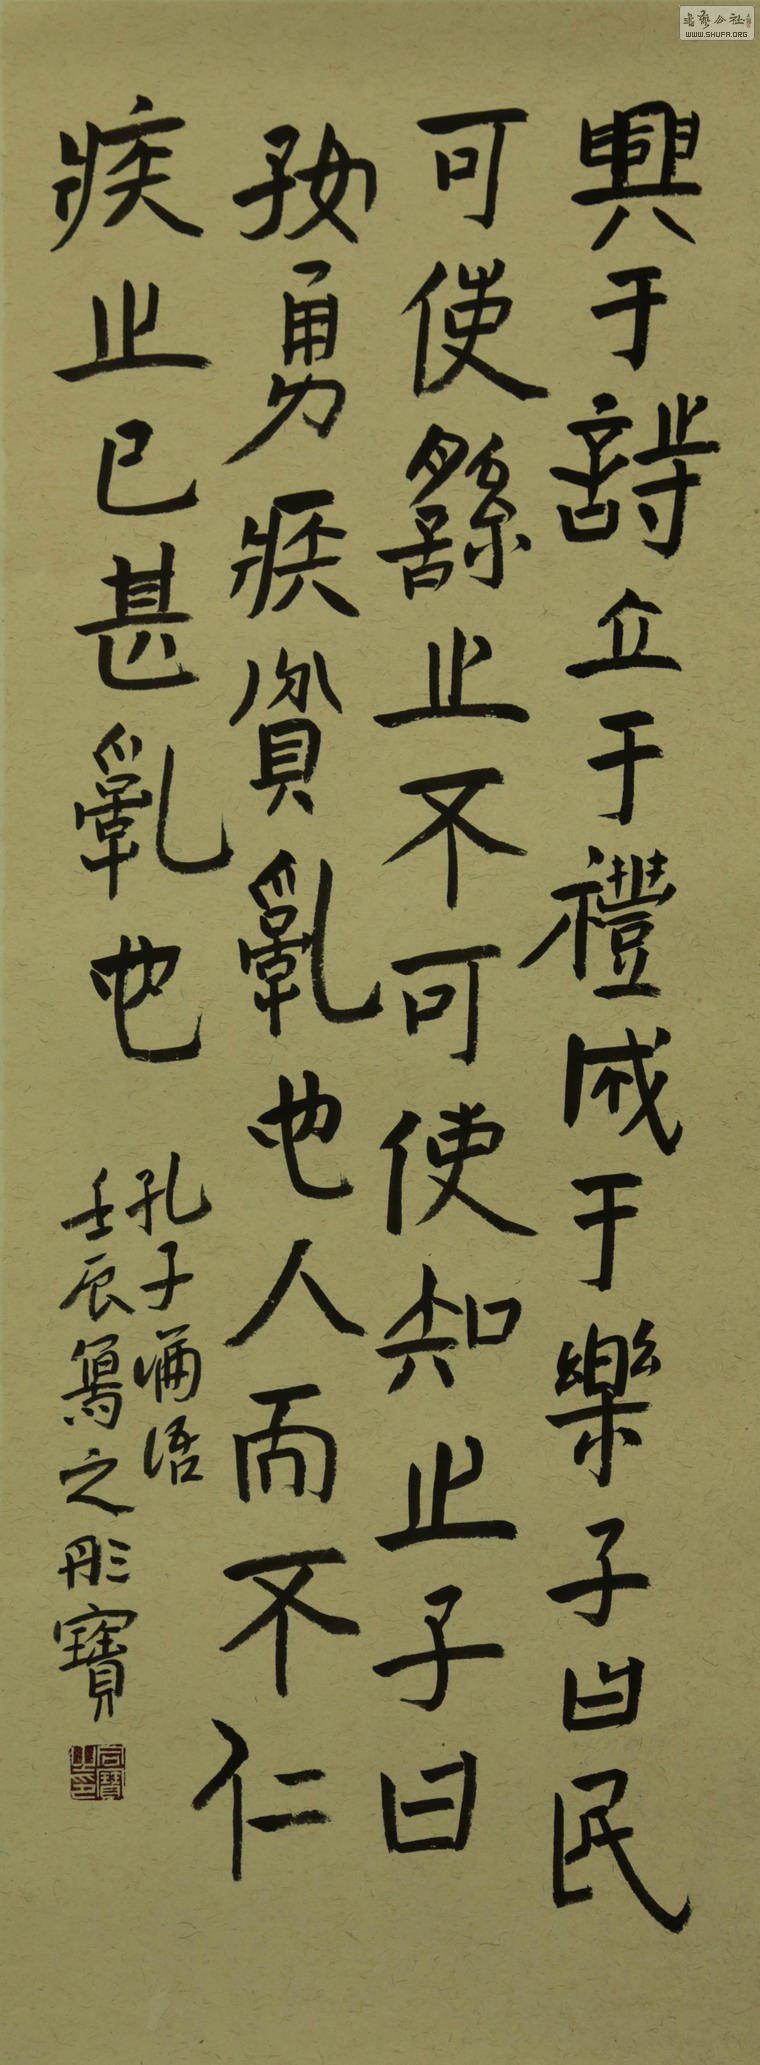 興于詩立于禮成于樂子曰民
可使繇之不可使知之子曰
好勇疾貧亂也人而不仁
疾之已甚亂也
孔子論語
壬辰寫之彤寶
WWW.SHUFA.ORG